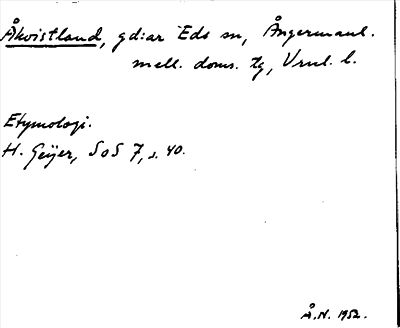 Åkvistland, gd:ar Eds sn, Ångermanl.
mell. doms. tg, Vrml. l.
Etymologi.
H. Geijer, SoS 7, s. 40.
Å.N. 1952.